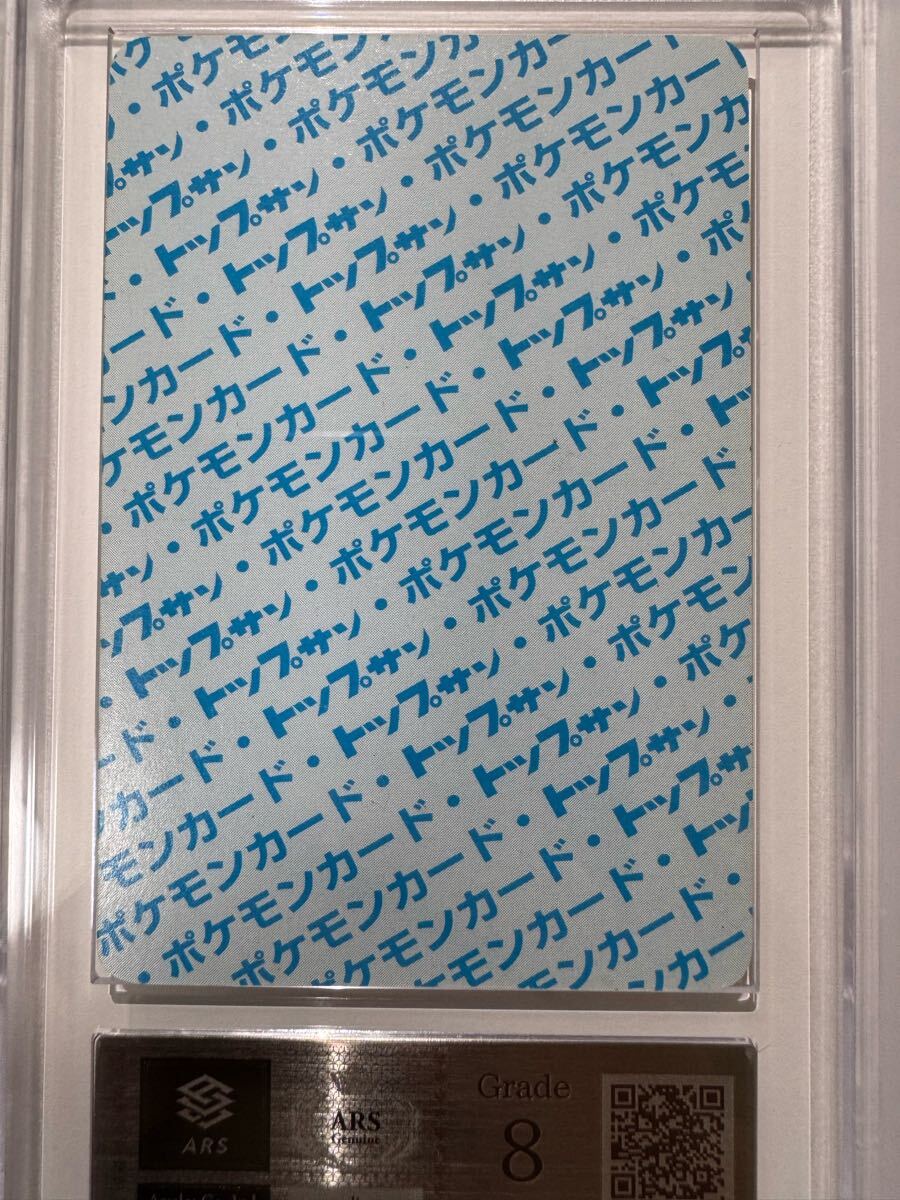 ・ポケモン
・ポケモンカー
・ポケモンカード
プサン・ポケモンカード
トップサン・ポケモンカード
・トップサン・ポケモンカー
ド・トップサン・ポケモン
ード・トップサン・ポケ
ンカード・トップサン・ポ
ケモンカード・トップサン・
・ポケモンカード・トップサン
・ポケモンカード・トップ
サン・ポケモンカード・ト
ップサン・ポケモンカード
・トップサン・ポケモンカー
・トップサン・ポケモンカ
ード・トップサン・ポケモン
カード・トップサン・ポケ
モンカード・トップサン・
ポケモンカード・トップサ
・ポケモンカード・トッ
ポケモンカード・
ケモンカード
モンカー
ARS
ARS
Genuine
Grade
8